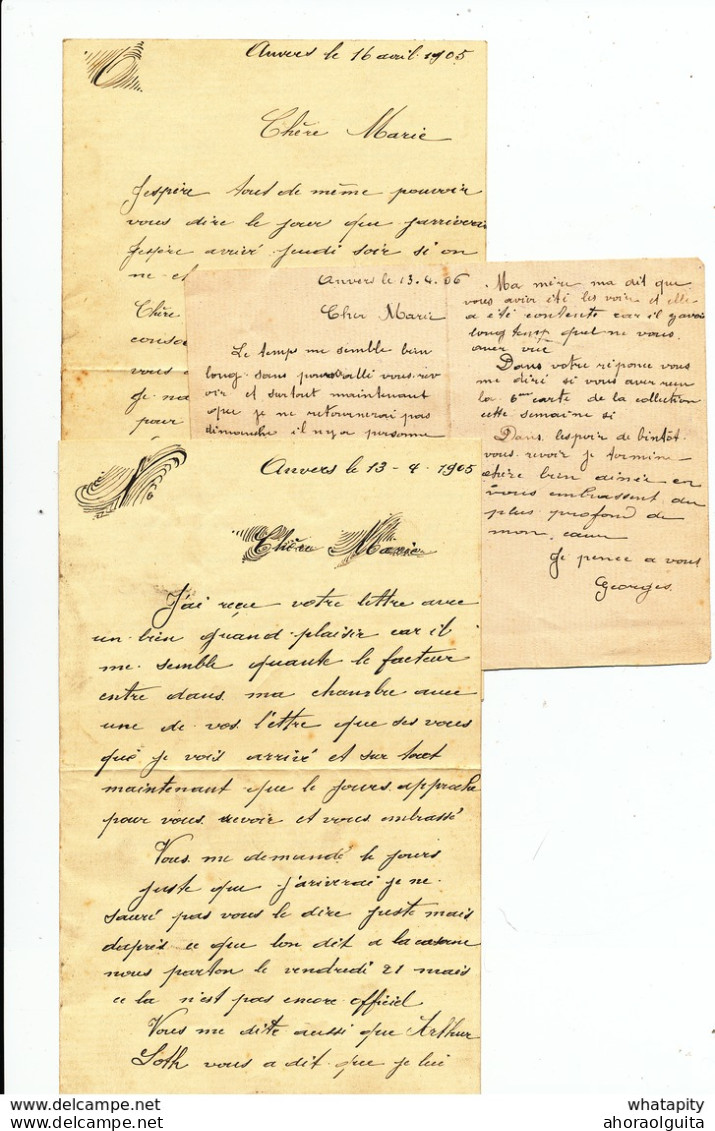 Anvers le 16 avril 1905
Chère Marie
J'espère tout de même pouvoir
vous dire le jour que j'arriverai
J'espère arrivé jeudi soir si on
ne
Chère
vous
Je
pour
Anvers le 13.4.06
Cher Marie
Le temps me semble bien
long sans vous rev
oir et surtout maintenant
que je ne retournerai pas
dimanche il n'y a personne
Ma mère ma dit que
vous avier été les voir et elle
a été contente car il y avai
longtemp quel ne vous
aver vue
Dans votre réponce vous
me diré si vous aver reru
la 6me carte de la collection
cette semaine si
Dans lespoir de bintôt
vous revoir je termine
chère bien aimée en
vous embrassent du
plus profond de
mon cœur
Je pence a vous
Georges
Anvers le 13-4-1905
Chère Marie
J'ai reçu votre lettre avec
un bien quand plaisir car il
me semble quante le facteur
entre dans ma chambre avec
une de vos lettre que ses vous
que je vois arrivé et sur tout
maintenant que le jours approche
pour vous revoir et vous embrassé
Vous me demandé le jours
juste que j'ariverai je ne
sauré pas vous le dire juste mais
daprès ce que lon dit a la caserne
nous parton le vendredi 21 mais
ce la n'est pas encore officiel
Vous me dite aussi que Arthur
Soth vous a dit que je lui
whatapity
ahoraolguita